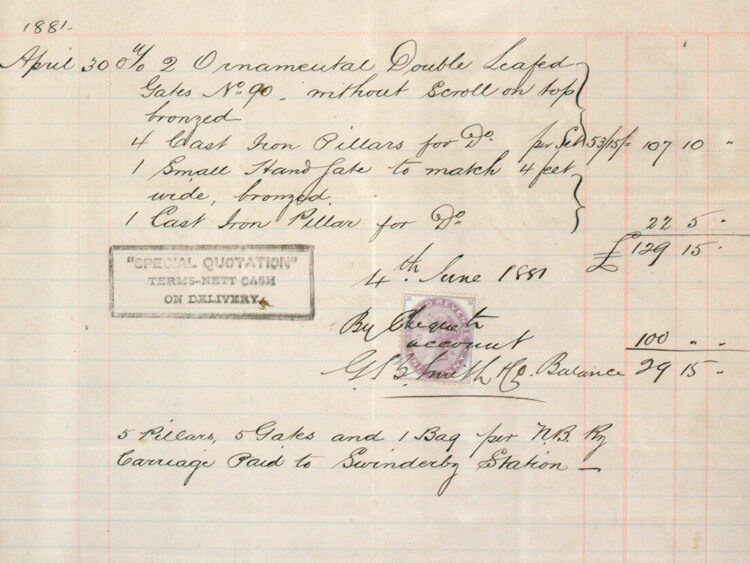 1881.
April 30 2 Ornamental Double Leafed
Gates No. 90. without Scroll on top
bronzed
4 Cast Iron Pillars for Do. per Set 53/15/- 107 10 "
1 Small Hand Gate to match 4 feet
wide, bronzed.
1 Cast Iron Pillar for Do. 22 5 "
£129 15 -
"SPECIAL QUOTATION"
TERMS-NETT CASH
ON DELIVERY.
4th June 1881
By Cheque to
account 100 " "
Smith & Co. Balance 29 15 -
5 Pillars, 5 Gates and 1 Bag per N.B. Ry
Carriage Paid to Swinderby Station —